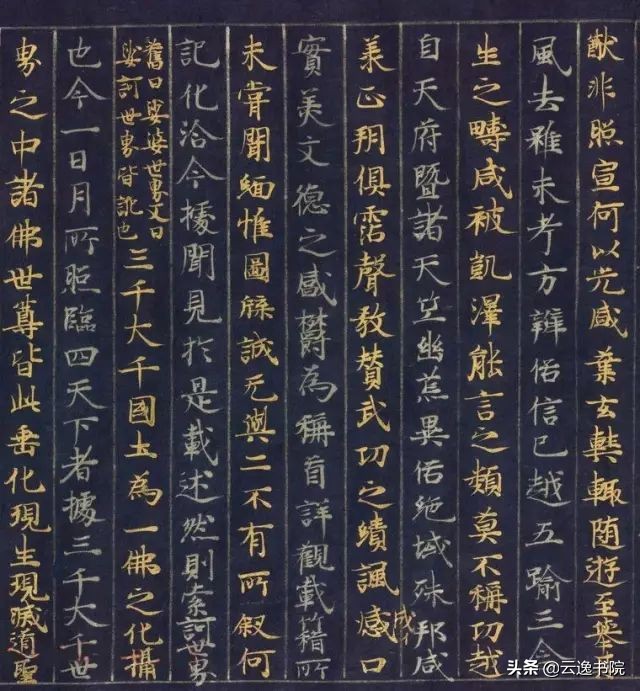 猷非照宣何以光盛業玄奘輒随遊至舉
風去雖未考方辨俗信已越五踰三含
生之疇咸被凱澤能言之類莫不稱功越
自天府暨諸天竺幽荒異俗絶域殊邦咸
承正朔俱霑聲教賛武功之績諷盛成口
實美文德之盛欝為稱首詳觀載籍所
未甞聞緬惟圖牒誠无與二不有所叙何
記化洽今據聞見於是載述然則索訶世界
舊曰娑婆世界又曰
娑訶世界皆訛也
三千大千國土為一佛之化攝
也今一日月所照臨四天下者據三千大千世
界之中諸佛世尊皆此垂化現生現滅道聖
头条 @云逸书院